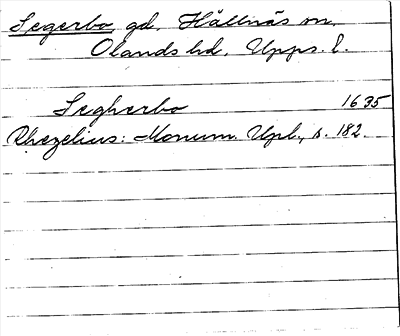 Segerbo, gd. Hållnäs sn.
Olands hd. Upps. l.
Segherbo 1635
Rhezelius: Monum. Upl., s. 182.